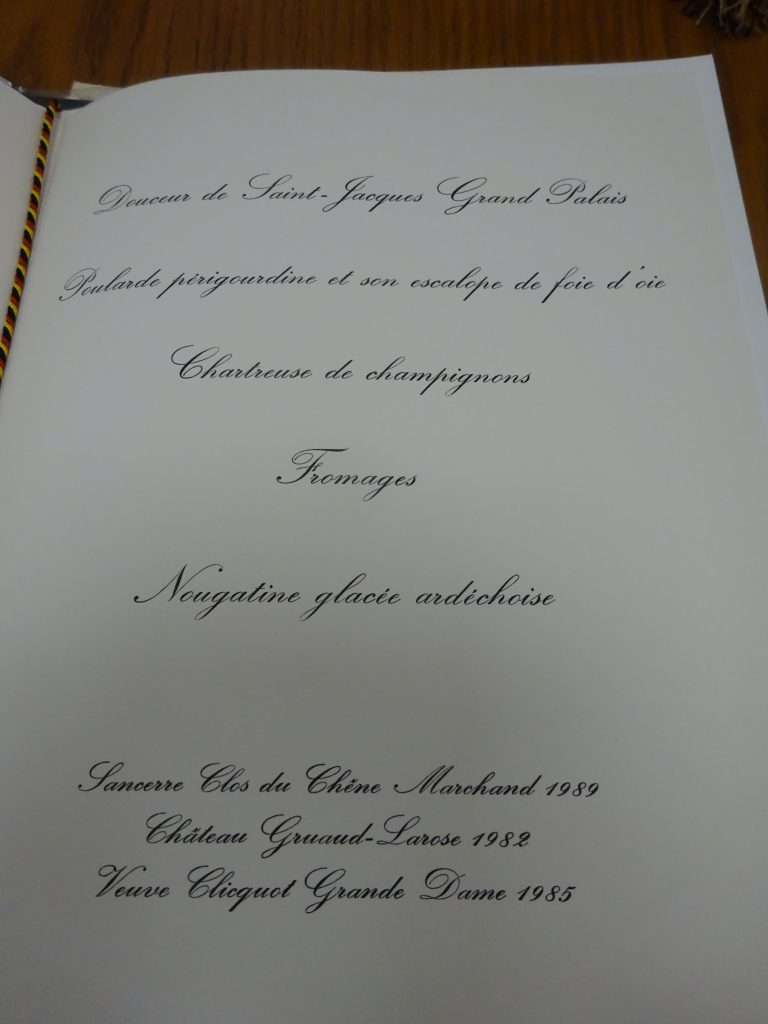 Douceur de Saint-Jacques Grand Palais
Poularde périgourdine et son escalope de foie d'oie
Chartreuse de champignons
Fromages
Nougatine glacée ardéchoise
Sancerre Clos du Chêne Marchand 1989
Château Gruaud-Larose 1982
Veuve Clicquot Grande Dame 1985